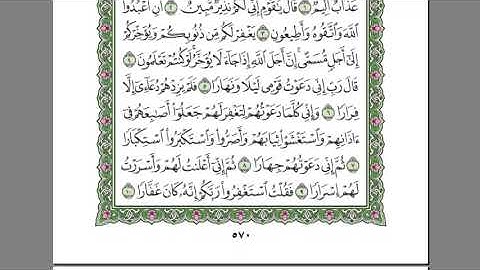 عَذَابٌ أَلِيمٌ ١ قَالَ يَٰقَوْمِ إِنِّي لَكُمْ نَذِيرٌ مُّبِينٌ ٢ أَنِ ٱعْبُدُوا۟
ٱللَّهَ وَٱتَّقُوهُ وَأَطِيعُونِ ٣ يَغْفِرْ لَكُم مِّن ذُنُوبِكُمْ وَيُؤَخِّرْكُمْ
إِلَىٰٓ أَجَلٍ مُّسَمًّى إِنَّ أَجَلَ ٱللَّهِ إِذَا جَآءَ لَا يُؤَخَّرُ لَوْ كُنتُمْ تَعْلَمُونَ ٤
قَالَ رَبِّ إِنِّي دَعَوْتُ قَوْمِي لَيْلًا وَنَهَارًا ٥ فَلَمْ يَزِدْهُمْ دُعَآءِيٓ إِلَّا
فِرَارًا ٦ وَإِنِّي كُلَّمَا دَعَوْتُهُمْ لِتَغْفِرَ لَهُمْ جَعَلُوٓا۟ أَصَٰبِعَهُمْ فِيٓ
ءَاذَانِهِمْ وَٱسْتَغْشَوْا۟ ثِيَابَهُمْ وَأَصَرُّوا۟ وَٱسْتَكْبَرُوا۟ ٱسْتِكْبَارًا
٧ ثُمَّ إِنِّي دَعَوْتُهُمْ جِهَارًا ٨ ثُمَّ إِنِّيٓ أَعْلَنتُ لَهُمْ وَأَسْرَرْتُ
لَهُمْ إِسْرَارًا ٩ فَقُلْتُ ٱسْتَغْفِرُوا۟ رَبَّكُمْ إِنَّهُۥ كَانَ غَفَّارًا ١٠
٥٧٠